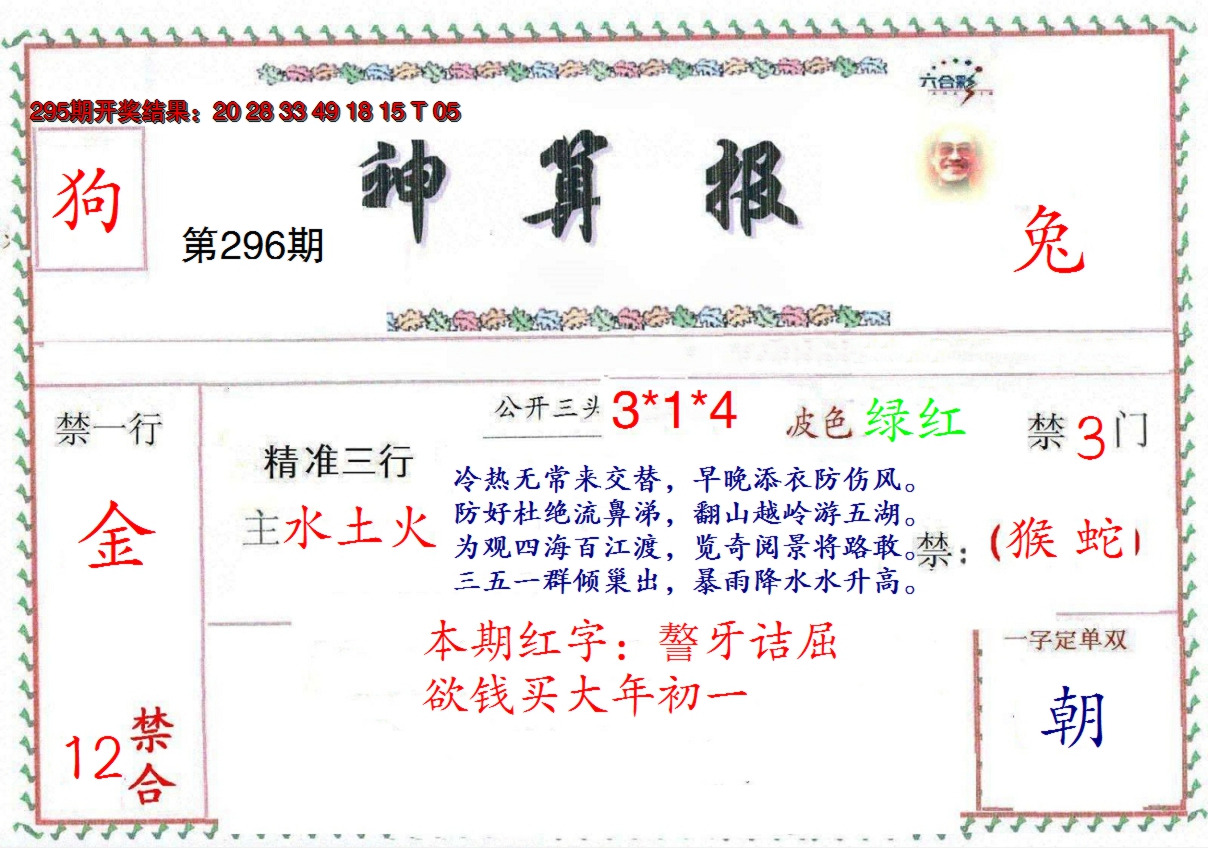 六合彩
295期开奖结果：20 28 33 49 18 15 T 05
神算报
狗
第296期
兔
公开三头 3*1*4
波色 绿红
禁一行
禁3门
精准三行
主水土火
冷热无常来交替，早晚添衣防伤风。
防好杜绝流鼻涕，翻山越岭游五湖。
为观四海百江渡，览奇阅景将路敢。
三五一群倾巢出，暴雨降水水升高。
禁：（猴 蛇）
金
本期红字：謷牙诘屈
欲钱买大年初一
一字定单双
朝
12禁合